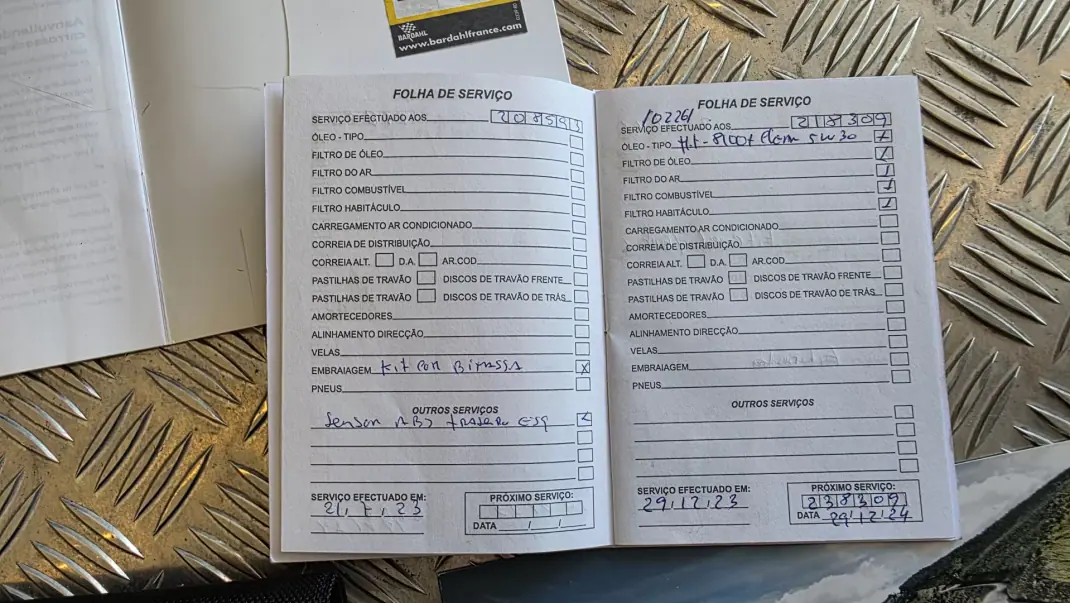 BARDAHL
www.bardahlfrance.com
FOLHA DE SERVIÇO
SERVIÇO EFECTUADO AOS 208593
ÓLEO - TIPO
FILTRO DE ÓLEO
FILTRO DO AR
FILTRO COMBUSTÍVEL
FILTRO HABITÁCULO
CARREGAMENTO AR CONDICIONADO
CORREIA DE DISTRIBUIÇÃO
CORREIA ALT. D.A. AR.COD
PASTILHAS DE TRAVÃO DISCOS DE TRAVÃO FRENTE
PASTILHAS DE TRAVÃO DISCOS DE TRAVÃO DE TRÁS
AMORTECEDORES
ALINHAMENTO DIRECÇÃO
VELAS
EMBRAIAGEM Kit con Bimassa X
PNEUS
OUTROS SERVIÇOS
Sensor ABS traseiro ESQ
SERVIÇO EFECTUADO EM:
21,7,23
PRÓXIMO SERVIÇO:
DATA / /
FOLHA DE SERVIÇO
102261
SERVIÇO EFECTUADO AOS 218309
ÓLEO - TIPO 8100x clean 5w30
FILTRO DE ÓLEO
FILTRO DO AR
FILTRO COMBUSTÍVEL
FILTRO HABITÁCULO
CARREGAMENTO AR CONDICIONADO
CORREIA DE DISTRIBUIÇÃO
CORREIA ALT. D.A. AR.COD
PASTILHAS DE TRAVÃO DISCOS DE TRAVÃO FRENTE
PASTILHAS DE TRAVÃO DISCOS DE TRAVÃO DE TRÁS
AMORTECEDORES
ALINHAMENTO DIRECÇÃO
VELAS
EMBRAIAGEM
PNEUS
OUTROS SERVIÇOS
SERVIÇO EFECTUADO EM:
29,12,23
PRÓXIMO SERVIÇO:
238309
DATA 29,12,24